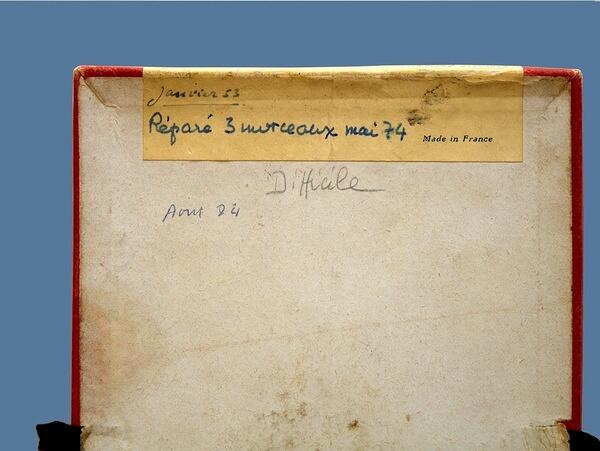 Janvier 53
Réparé 3 morceaux mai 74
Made in France
Difficile
Aout 84